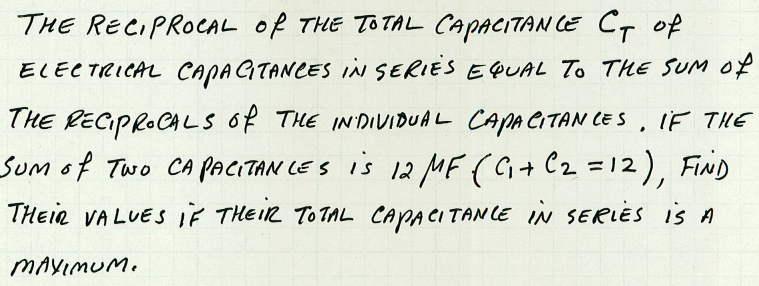 THE RECIPROCAL OF THE TOTAL CAPACITANCE C_T OF
ELECTRICAL CAPACITANCES IN SERIES EQUAL TO THE SUM OF
THE RECIPROCALS OF THE INDIVIDUAL CAPACITANCES. IF THE
SUM OF TWO CAPACITANCES IS 12 μF (C1 + C2 = 12), FIND
THEIR VALUES IF THEIR TOTAL CAPACITANCE IN SERIES IS A
MAXIMUM.